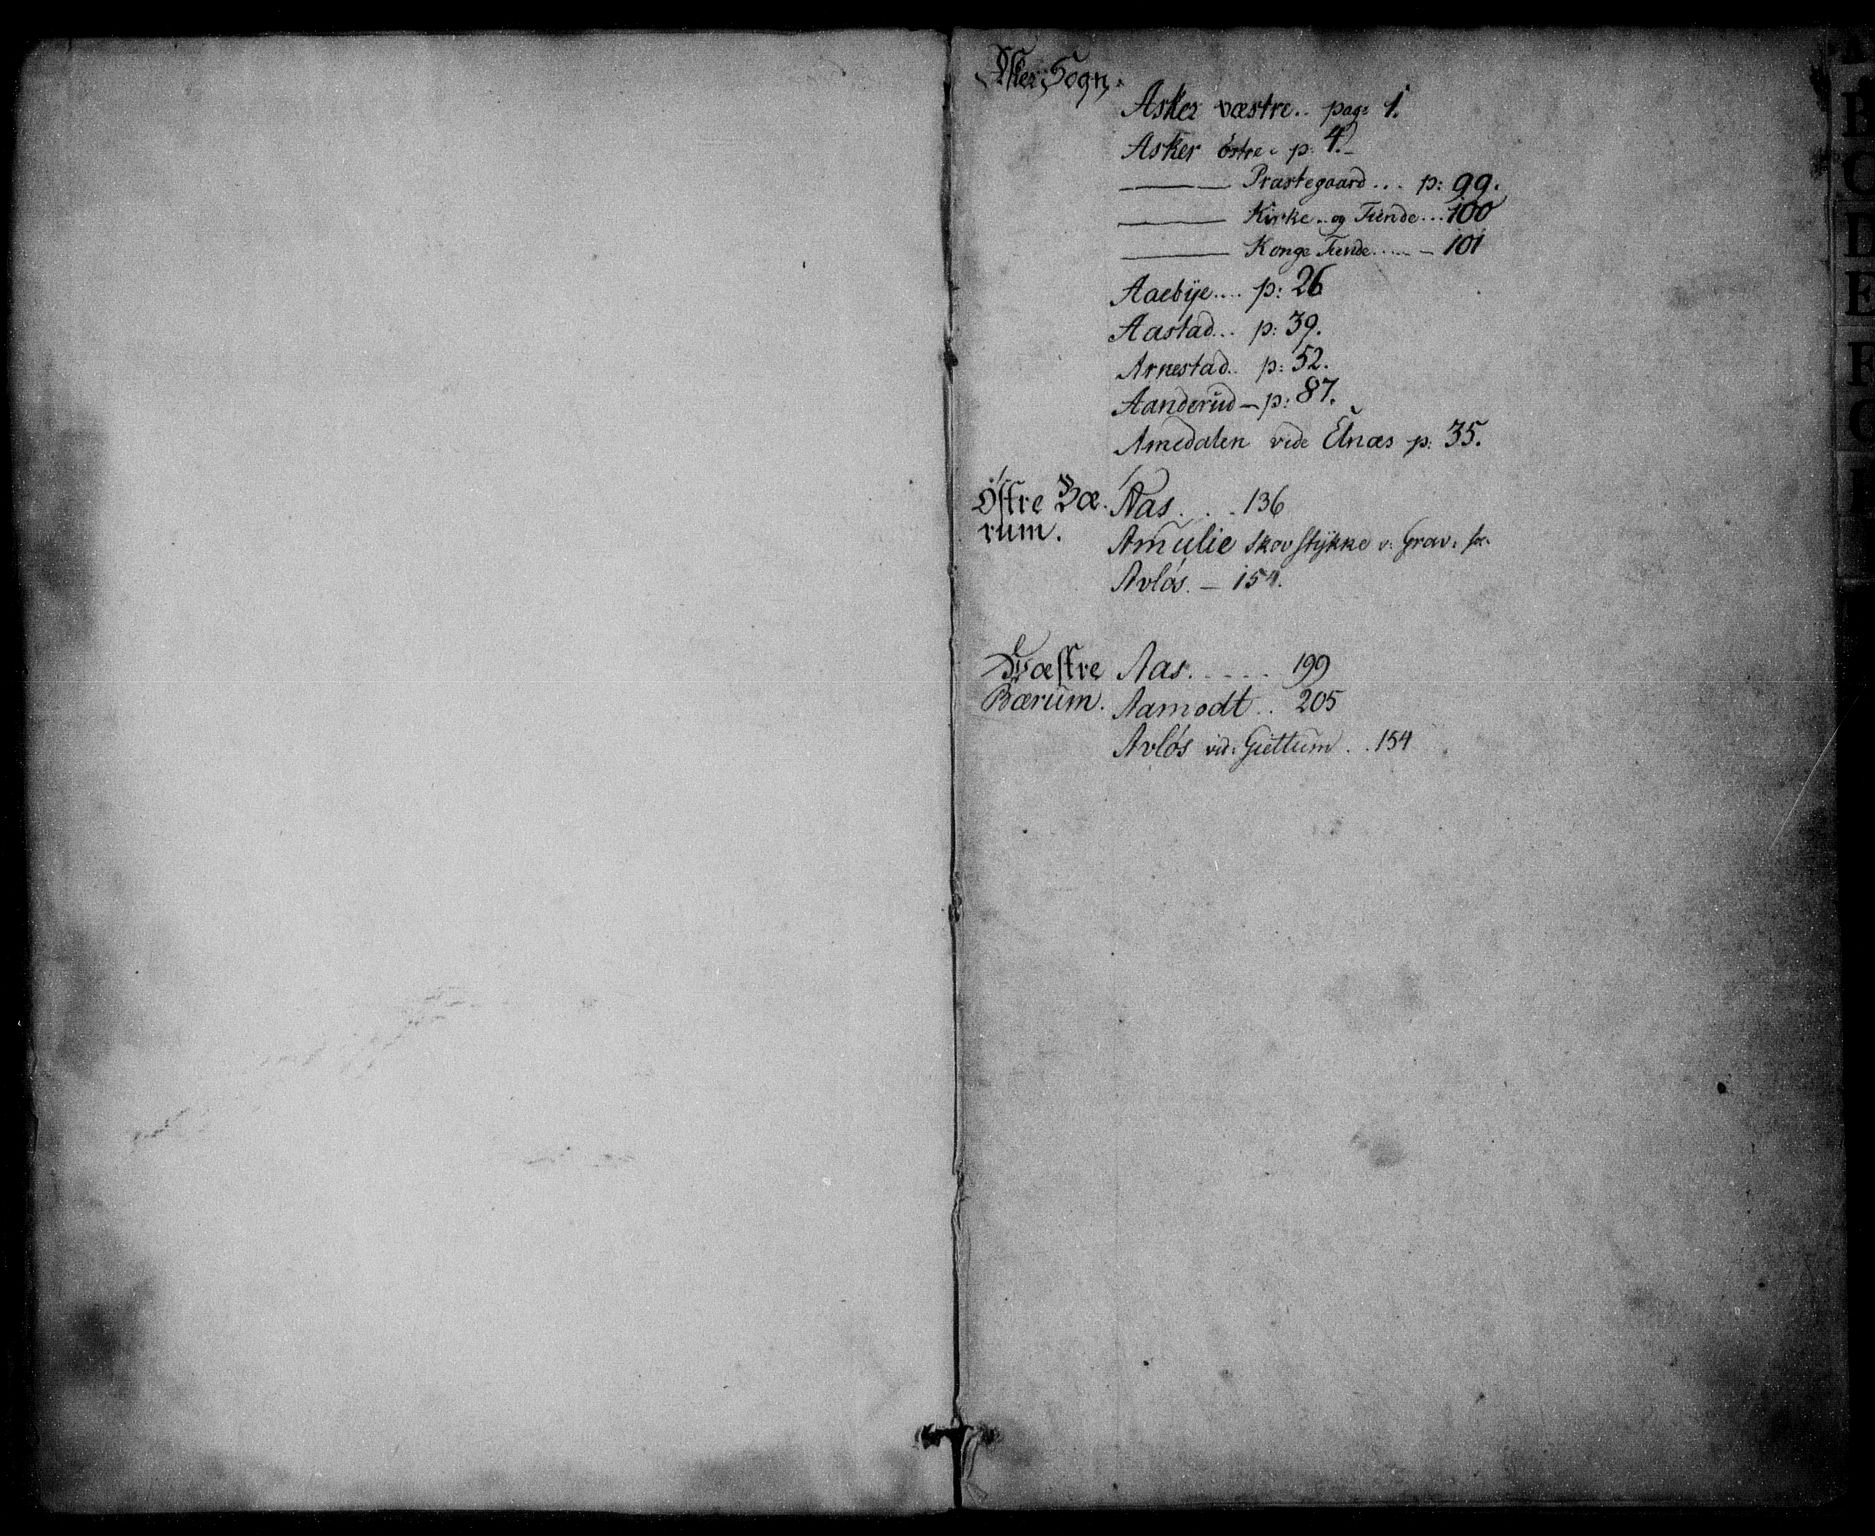 Asker Sogn.
Asker væstre.. pag: 1.
Asker östre. p: 4.
——— Præstegaard... p: 99.
——— Kirke.. og Tiende... 100
——— Konge Tiende..... 101
Aaebÿe.... p: 26
Aastad... p: 39.
Arnestad.. p: 52.
Aanderud — p: 87.
Amedalen vide Elnæs p: 35.
Østre Bæ-
rum.
Aas. . . . 136
Amulie Skov stÿkke v: Grav:
Avløs. — 154.
Væstre
Bærum.
Aas. . . . . 199
Aamodt . . 205
Avløs vid: Giettum . . 154
A
B
C
D
E
F
G